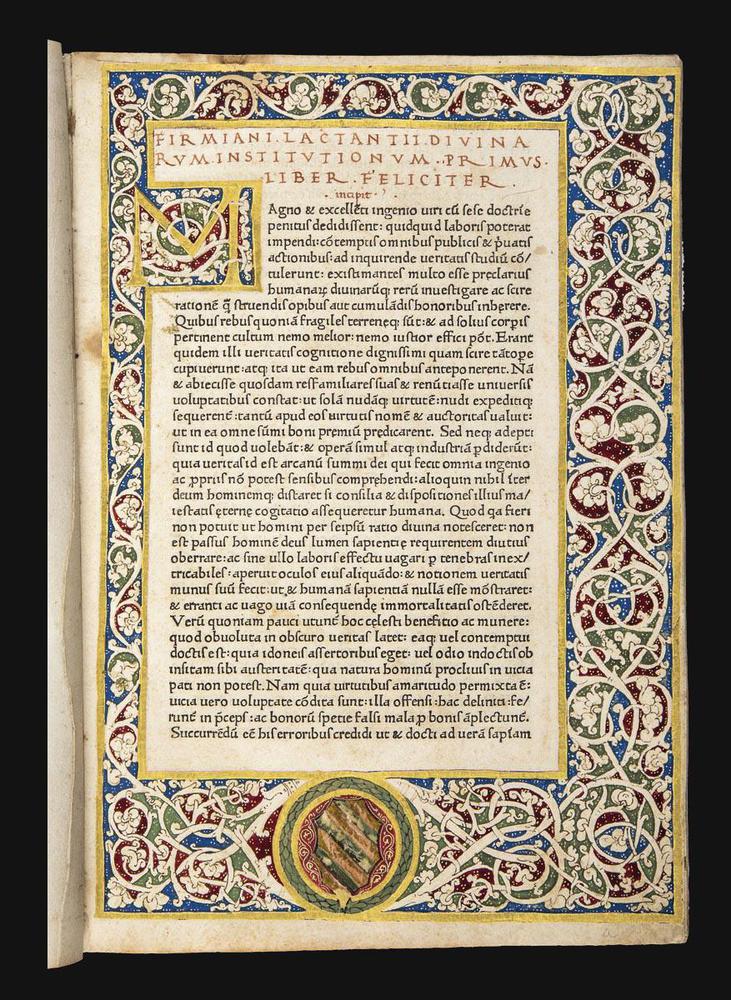 FIRMIANI.LACTANTII.DIVINA
RVM.INSTITVTIONVM.PRIMVS.
LIBER.FELICITER.
.incipit.
MAgno & excellẽti ingenio uiri cũ sese doctrĩe
penitus dedidissent: quidquid laboris poterat
impendi: cõtemptis omnibus publicis & p̃uatis
actionibus: ad inquirende ueritatis studiũ cõ/
tulerunt: existimantes multo esse pręclarius
humanaꝝ diuinarũq; rerũ inuestigare ac scire
rationẽ q̃ struendis opibus aut cumulãdis honoribus inhęrere.
Quibus rebus quoniã fragiles terreneq; sũt: & ad solius corpis
pertinent cultum nemo melior: nemo iustior effici põt. Erant
quidem illi ueritatis cognitione dignissimi quam scire tãtope
cupiuerunt: atq; ita ut eam rebus omnibus anteponerent. Nã
& abiecisse quosdam res familiares suas & renũtiasse uniuersis
uoluptatibus constat: ut solã nudãq; uirtutẽ: nudi expeditiq;
sequerent̃: tantũ apud eos uirtutis nomẽ & auctoritas ualuit:
ut in ea omne sũmi boni pręmiũ prędicarent. Sed neq; adepti
sunt id quod uolebãt: & operã simul atq; industriã ꝑdiderũt:
quia ueritas id est arcanũ summi dei qui fecit omnia ingenio
ac ꝓpriis nõ potest sensibus comprehendi: alioquin nihil ĩter
deum hominemq; distaret si consilia & dispositiones illius ma/
iestatis ęternę cogitatio assequeretur humana. Quod q̃a fieri
non potuit ut homini per seipsũ ratio diuina notesceret: non
est passus hominẽ deus lumen sapientię requirentem diutius
oberrare: ac sine ullo laboris effectu uagari ꝑ tenebras inex/
tricabiles: aperuit oculos eius aliquãdo: & notionem ueritatis
munus suũ fecit: ut & humanã sapientiã nullã esse mõstraret:
& erranti ac uago uiã consequendę immortalitatis ostẽderet.
Verũ quoniam pauci utunt̃ hoc cęlesti benefitio ac munere:
quod obuoluta in obscuro ueritas latet: eaq; uel contemptui
doctis est: quia idoneis assertoribus eget: uel odio indoctis ob
insitam sibi austeritatẽ: qua natura hominũ procliuis in uicia
pati non potest. Nam quia uirtutibus amaritudo permixta ẽ:
uicia uero uoluptate cõdita sunt: illa offensi: hac deliniti: fe/
runt̃ in p̃ceps: ac bonorũ spetie falsi mala ꝓ bonis ãplectunt̃.
Succurrẽdũ eẽ his erroribus credidi ut & docti ad uerã sapĩam